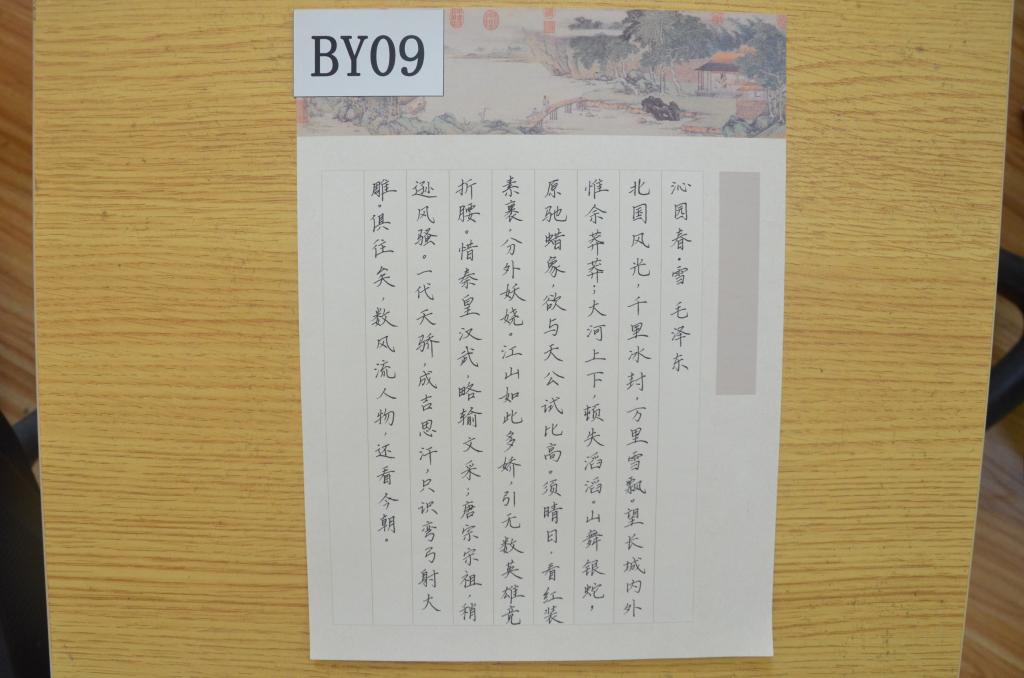 BY09
沁园春·雪 毛泽东
北国风光，千里冰封，万里雪飘。望长城内外
惟余莽莽；大河上下，顿失滔滔。山舞银蛇，
原驰蜡象，欲与天公试比高。须晴日，看红装
素裹，分外妖娆。江山如此多娇，引无数英雄竞
折腰。惜秦皇汉武，略输文采；唐宗宋祖，稍
逊风骚。一代天骄，成吉思汗，只识弯弓射大
雕。俱往矣，数风流人物，还看今朝。